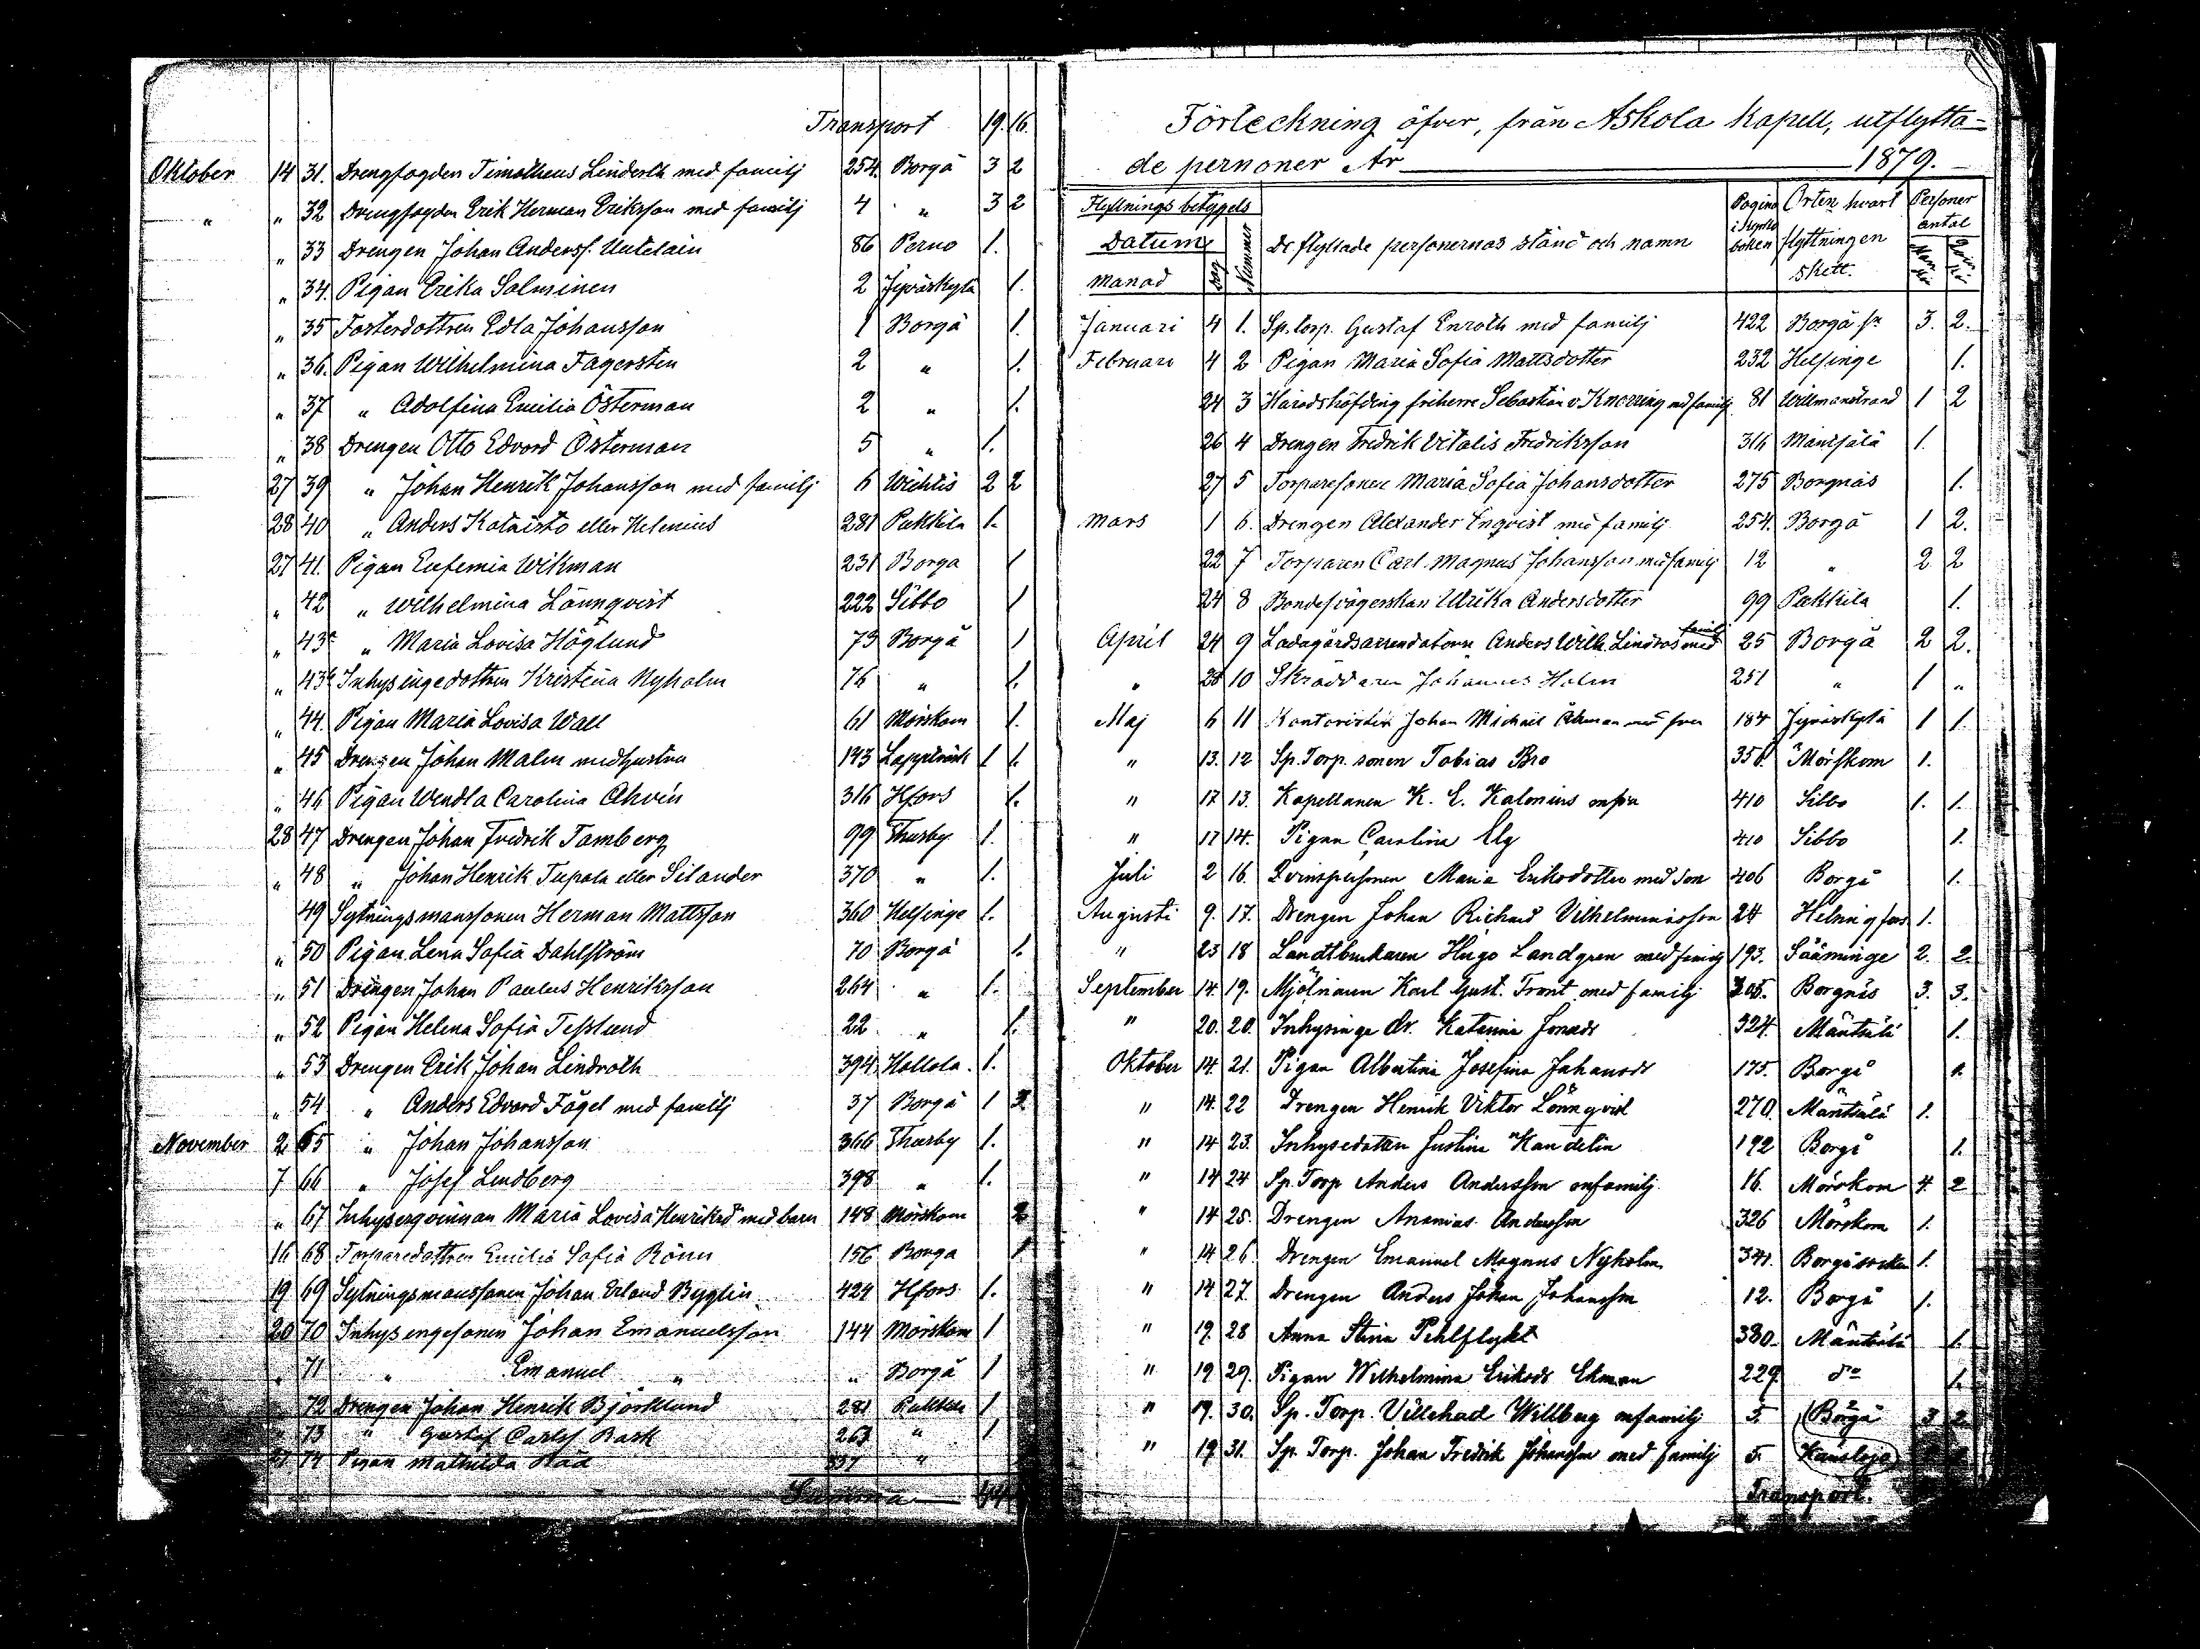 Transport 19. 16.
Oktober 14 31. Drengfogden Timotheus Linderth med familj 254. Borgå 3 2
" " 32 Drengfogden Erik Herman Eriksson med familj 4 " 3 2
" 33 Drengen Johan Anderss. Uutelain 86 Perno 1.
" 34. Pigan Erika Salminen 2 Jyväskylä 1.
" 35 Fosterdottren Edla Johansson 1 Borgå 1.
" 36. Pigan Wilhelmina Fagersten 2 " 1.
" 37 " Adolfina Emilia Österman 2 " 1.
" 38 Drengen Otto Edvard Österman 5 " 1.
27 39 " Johan Henrik Johansson med familj 6 Wichtis 2 2
28 40 " Anders Kataisto eller Helenius 281 Pukkila 1.
27 41. Pigan Eufemia Wikman 231 Borgå 1
" 42 " Wilhelmina Lönnqvist 222 Sibbo 1
" 43a " Maria Lovisa Höglund 73 Borgå 1
" 43b Inhysingedottren Kristina Nyholm 76 " 1.
" 44. Pigan Maria Lovisa Wall 61 Mörskom 1.
" 45 Drengen Johan Malm med hustru 143 Lappträsk 1 1.
" 46 Pigan Wendla Carolina Ahvén 316 Hfors 1.
28 47 Drengen Johan Fredrik Tamberg 99 Thusby 1.
" 48 " Johan Henrik Tupala eller Silander 370 " 1.
49 Sytningsmanssonen Herman Mattsson 360 Helsinge 1.
" 50 Pigan Lena Sofia Dahlström 70 Borgå 1.
" 51 Drengen Johan Paulus Henriksson 264 " 1.
" 52 Pigan Helena Sofia Teslund 22 " 1.
" 53 Drengen Erik Johan Lindroth 394 Hollola. 1.
" 54 " Anders Edvard Fågel med familj 37 Borgå 1 2
November 2 65 " Johan Johansson 366 Thusby 1.
7 66 " Josef Lindberg 398 " 1.
" 67 Inhyseqvinnan Maria Lovisa Henriksd. med barn 148 Mörskom 2
16 68 Torparedottren Emilia Sofia Rönn 156 Borgå 1
19 69 Sytningsmanssonen Johan Erland Byglin 424 Hfors 1.
20 70 Inhysingesonen Johan Emanuelsson 144 Mörskom 1
" 71 " Emanuel " " Borgå 1
" 72 Drengen Johan Henrik Björklund 281 Pukkila 1
" 73 " Gustaf Carlss Bask 263 " 1
74 Pigan Mathilda "
Summa 44
Förteckning öfver, från Askola Kapell, utflytta-
de personer År 1879.
Flyttnings betygets
Datum
Manad Dag Nummer De flyttade personernas stånd och namn Pagina i kyrko boken Orten hvart flyttningen skett. Personer antal Man kön Qvin kön
Januari 4 1. Sp. torp. Gustaf Enroth med familj 422 Borgå sn 3. 2.
Februari 4 2 Pigan Maria Sofia Mattsdotter 232 Helsinge 1.
24 3 Häradshöfding friherre Sebastian v. Knorring med familj 81 Willmanstrand 1 2
26 4 Drengen Fredrik Vitalis Fredriksson 316 Mäntsälä 1.
27 5 Torparesonen Maria Sofia Johansdotter 275 Borgnäs 1.
Mars 1 6. Drengen Alexander Enqvist med familj 254. Borgå 1 2.
22 7 Torparen Carl Magnus Johansson med familj 12 " 2 2
24 8 Bondesvägerskan Ulrika Andersdotter 99 Pukkila 1.
April 24 9 Ladugårdsarrendatorn Anders Wilh. Lindros med familj 25 Borgå 2 2.
" 28 10 Skräddaren Johannes Holm 251 " 1 "
Maj 6 11 Kontoristen Johan Michael Åhman med fru 184 Jyväskylä 1 1.
" 13. 12 Sp. Torp. sonen Tobias Bro 350 Mörskom 1.
" 17 13. Kapellanen K. E. Kalonius m fru 410 Sibbo 1. 1.
" 17 14. Pigan Carolina Elg 410 Sibbo 1.
Juli 2 16. Qvinspersonen Maria Eriksdotter med son 406 Borgå 1.
Augusti 9. 17. Drengen Johan Richard Vilhelminsson 24 Helsingfors 1.
" 23 18 Landtbrukaren Hugo Landgren med familj 193. Sääminge 2. 2.
September 14. 19. Mjölnaren Karl Gust. Front med familj 305. Borgnäs 3. 3.
" 20. 20. Inhysinge dr. Katarina Jonasdr 324. Mäntsälä 1.
Oktober 14. 21. Pigan Albertina Josefina Johansdr 175. Borgå 1.
" 14. 22 Drengen Henrik Viktor Lönnqvist 270. Mäntsälä 1.
" 14 23. Inhysedotter Justina Kandelin 192 Borgå 1.
" 14 24 Sp. Torp Anders Andersson m familj 16. Mörskom 4. 2
" 14 25. Drengen Ananias Andersson 326 Mörskom 1.
" 14 26. Drengen Emanuel Magnus Nyholm 341. Borgå socken 1.
" 14 27. Drengen Anders Johan Johansson 12. Borgå 1.
" 19. 28 Anna Stina Pehlflykt 380. Mäntsälä 1.
" 19 29. Pigan Wilhelmina Eriksdr Ekman 229 do 1.
" 19. 30. Sp. Torp. Villehad Willberg m familj 5. Borgå 3 2
" 19 31. Sp. Torp. Johan Fredrik Johansson med familj 5.
Transport.